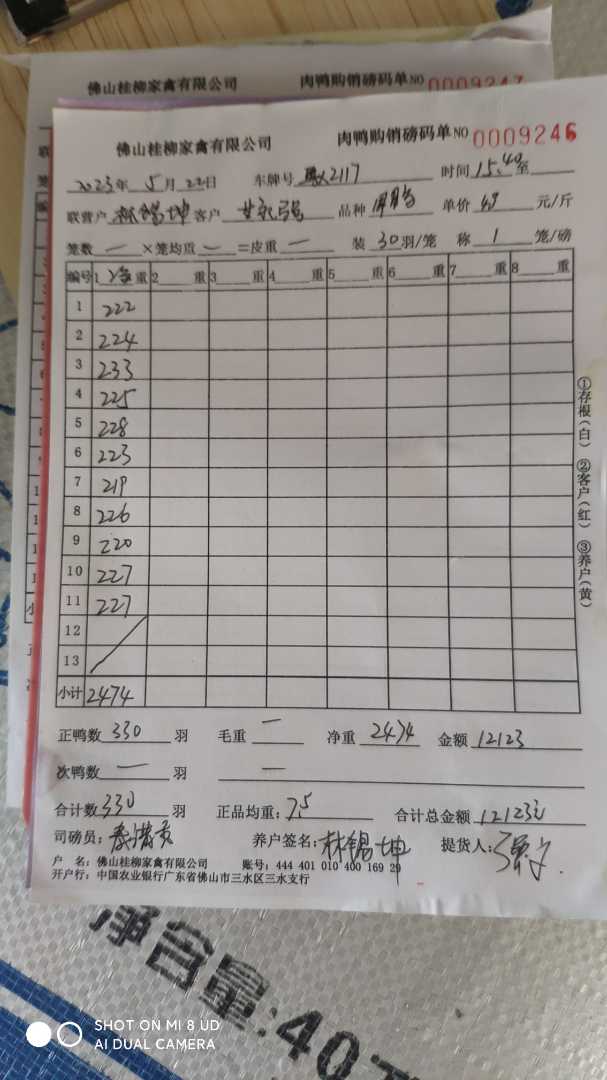 佛山桂柳家禽有限公司 肉鸭购销磅码单NO 0009247
佛山桂柳家禽有限公司 肉鸭购销磅码单NO 0009246
2023年 5月 22日 车牌号 2117 时间 15:40 至
联营户 林锡坤 客户 品种 单价 4.9 元/斤
笼数 一 ×笼均重 一 =皮重 一 装 30 羽/笼 称 1 笼/磅
编号 1 净 重 2 重 3 重 4 重 5 重 6 重 7 重 8 重
1 222
2 224
3 233
4 225
5 228
6 223
7 219
8 226
9 220
10 227
11 227
12
13
小计 2474
①存根(白) ②客户(红) ③养户(黄)
正鸭数 330 羽 毛重 一 净重 2474 金额 12123
次鸭数 一 羽 一
合计数 330 羽 正品均重: 7.5 合计总金额 12123元
司磅员: 养户签名: 林锡坤 提货人:
户 名: 佛山桂柳家禽有限公司 账号: 444 401 010 400 169 29
开户行: 中国农业银行广东省佛山市三水区三水支行
净含量:40
SHOT ON MI 8 UD
AI DUAL CAMERA